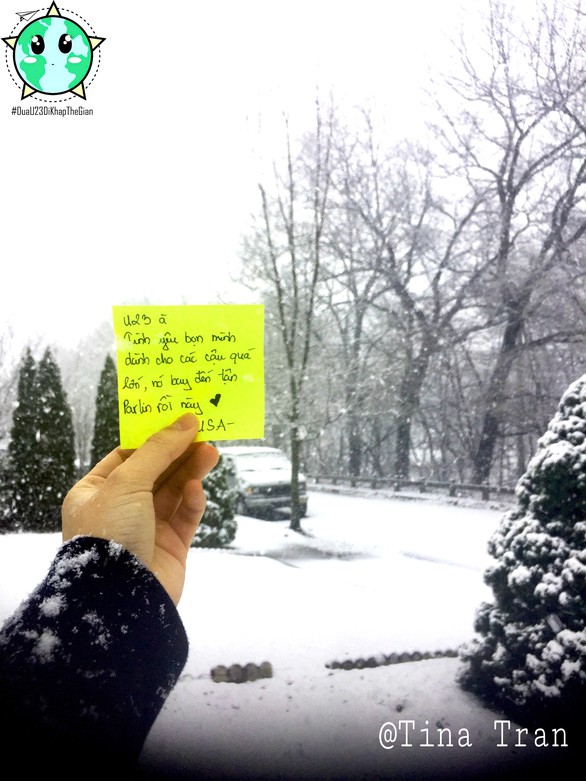 #DuaU23DiKhapTheGian
U23 à
Tình yêu bọn mình
dành cho các cậu quá
lớn, nó bay đến tận
Parlin rồi này
USA-
@Tina Tran